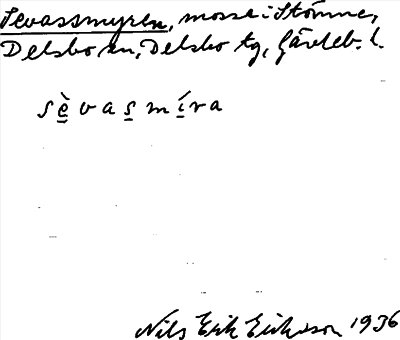 Sevassmyren, mosse i Stömne,
Delsbo sn, Delsbo tg, Gävleb. l.
sèvasmíra
Nils Erik Eriksson 1936